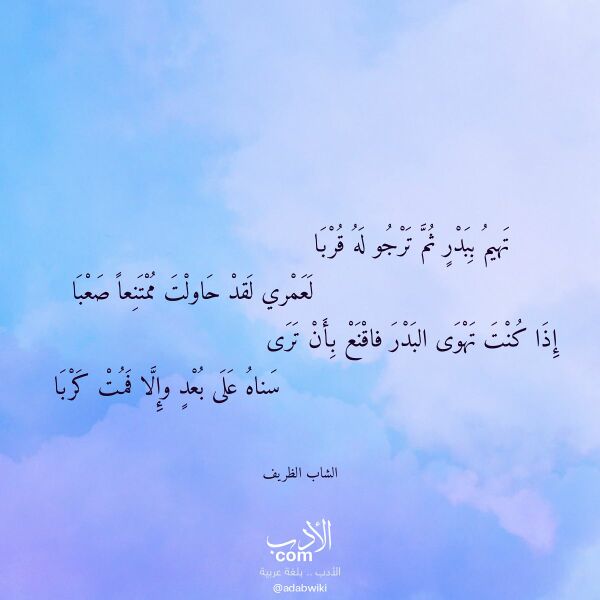 تَهيمُ بِبَدْرٍ ثُمَّ تَرْجُو لَهُ قُرْبَا
لَعَمْري لَقدْ حَاولْتَ مُمْتَنِعاً صَعْبَا
إِذَا كُنْتَ تَهْوَى البَدْرَ فاقْنَعْ بِأَنْ تَرَى
سَناهُ عَلَى بُعْدٍ وإِلَّا فَمُتْ كَرْبَا
الشاب الظريف
الأدب
com
الأدب .. بلغة عربية
@adabwiki